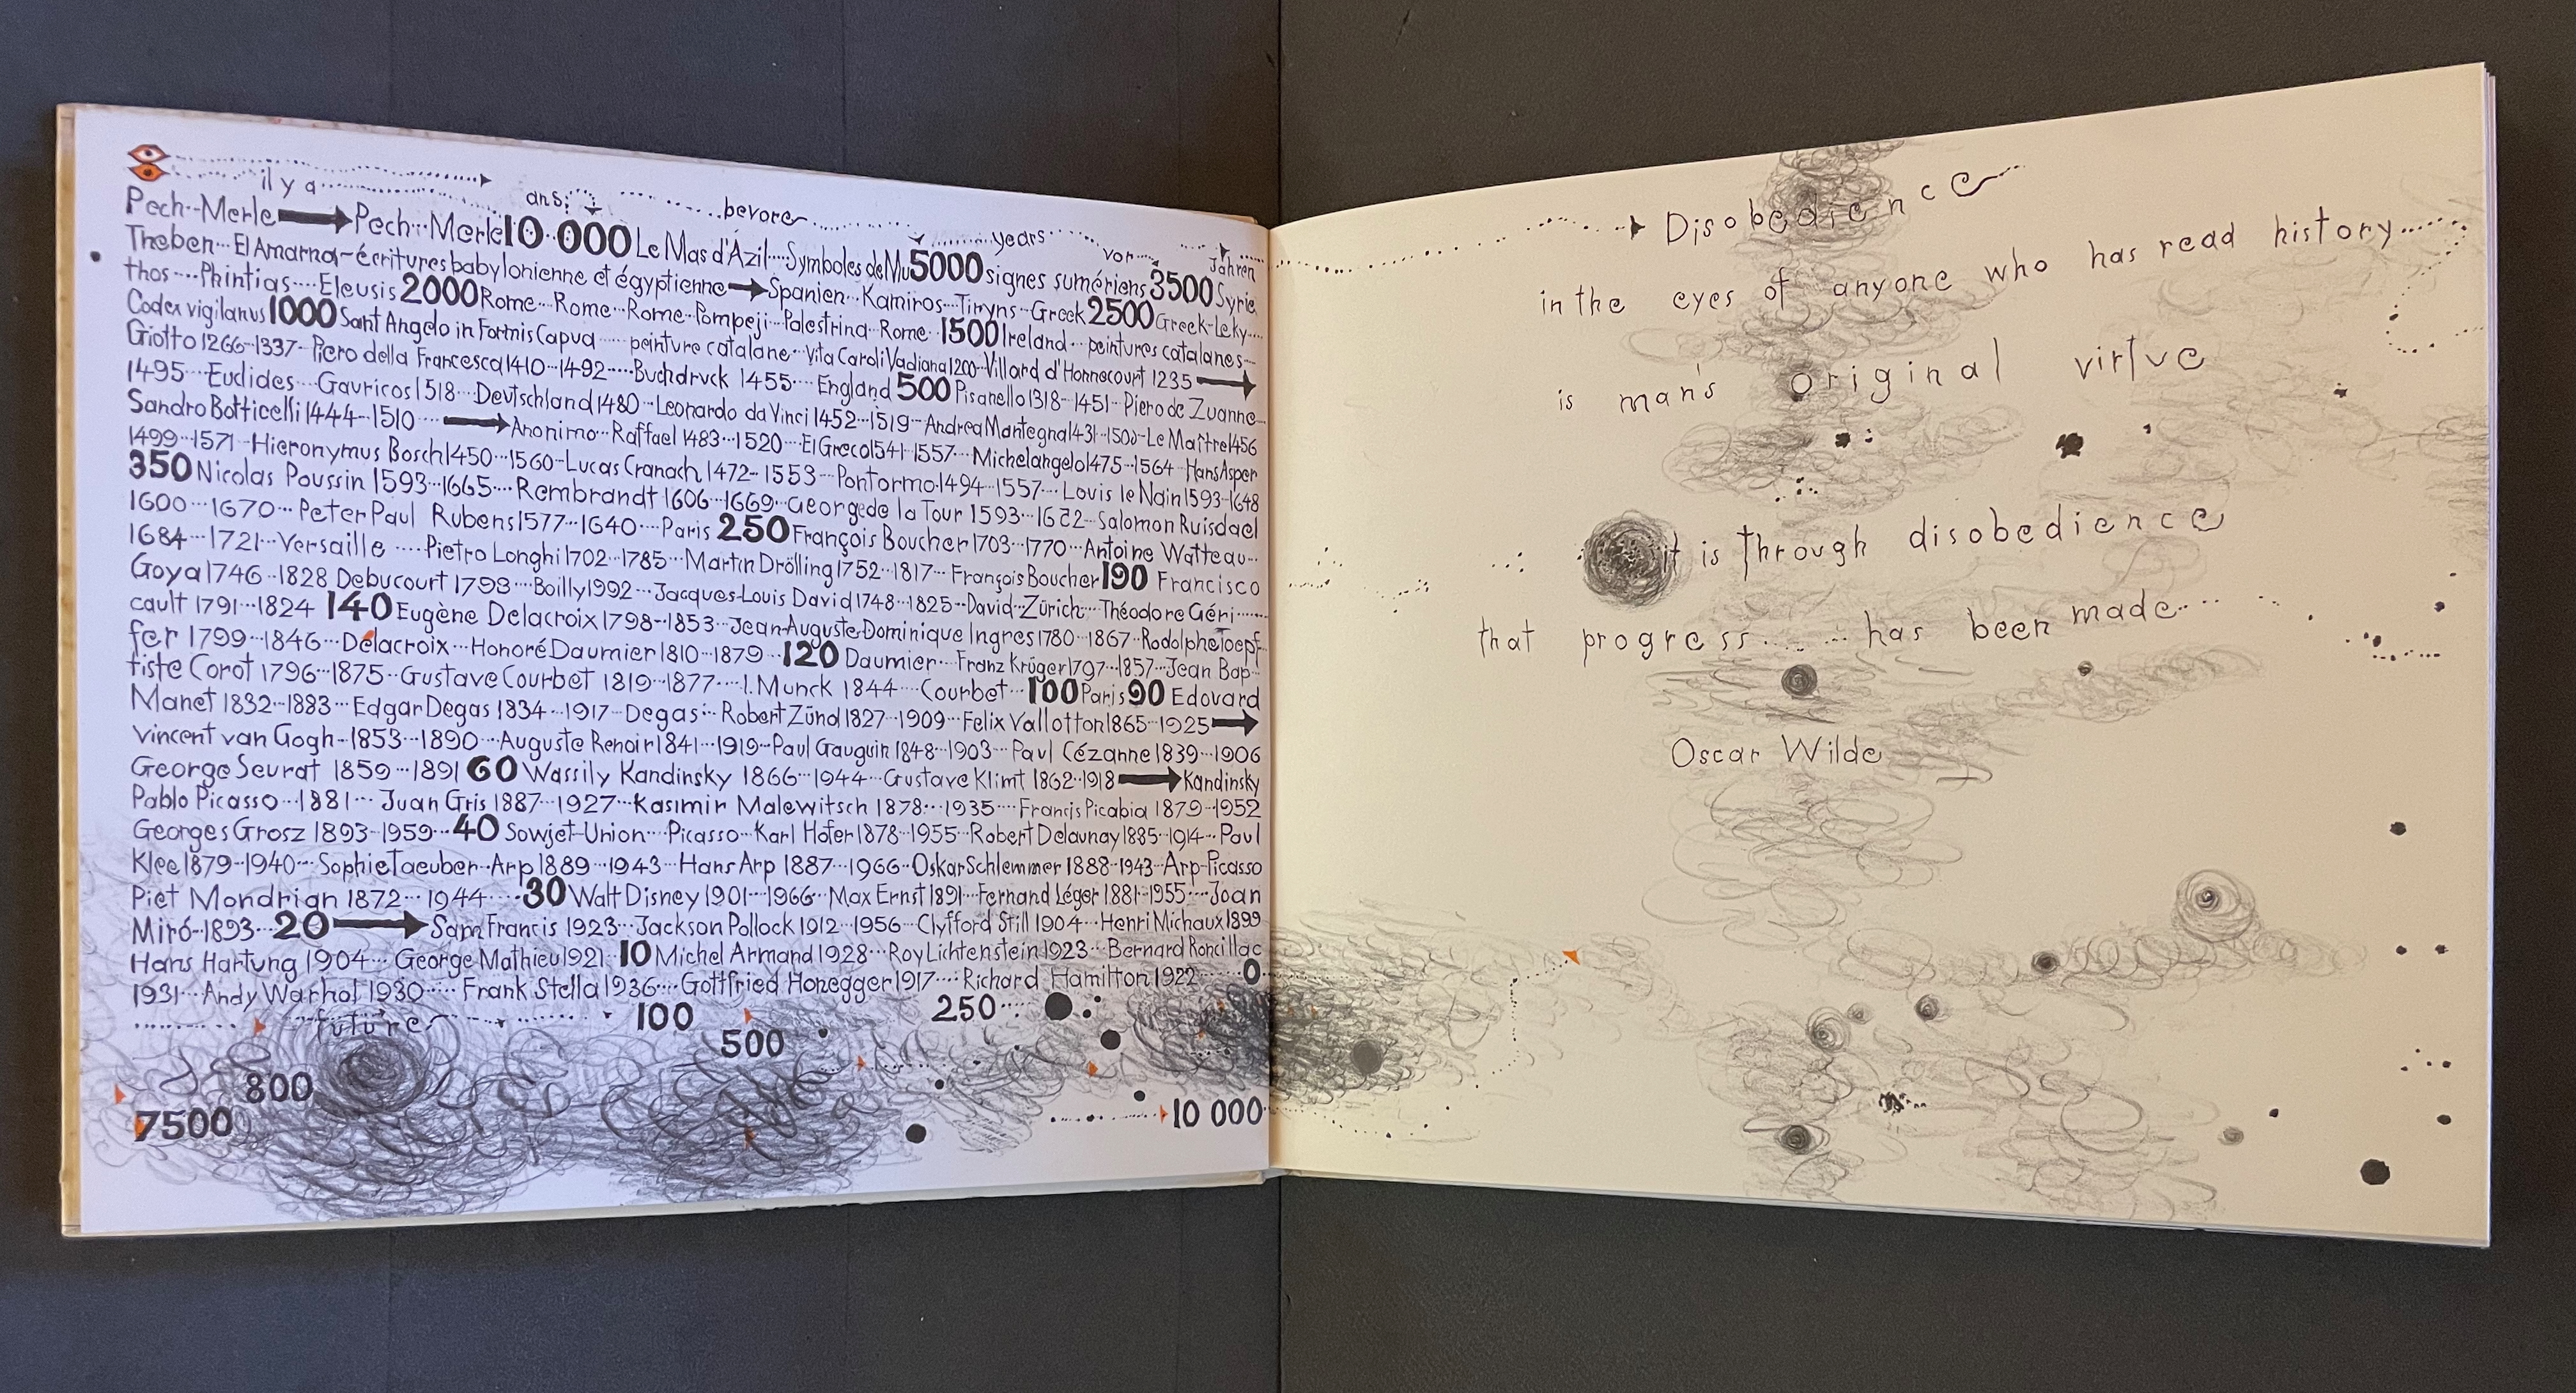 il y a ans: bevore years vor Jahren
Pech··Merle Pech··Merle 10·000 Le Mas d'Azil····Symboles de Mu 5000 signes sumériens 3500 Syrie
Theben···El Amarna-écritures babylonienne et égyptienne Spanien··Kamiros···Tiryns··Greek 2500 Greek-Leky····
thos····Phintias····Eleusis 2000 Rome···Rome···Rome··Pompeji··Palestrina··Rome··1500 Ireland···peintures catalanes···
Codex vigilanus 1000 Sant Angelo in Formis Capua·····peinture catalane··Vita Caroli Vadiana 1200··Villard d'Honnecourt 1235
Giotto 1266··1337··Piero della Francesca 1410··1492·····Buchdruck 1455····England 500 Pisanello 1318··1451··Piero de Zuanne···
1495···Euclides···Gauricos 1518···Deutschland 1480··Leonardo da Vinci 1452··1519··Andrea Mantegna 1431··1500··Le Maître 1456
Sandro Botticelli 1444··1510···· Anonimo··Raffael 1483···1520···El Greco 1541··1557···Michelangelo 1475··1564··Hans Asper
1499··1571··Hieronymus Bosch 1450···1560-Lucas Cranach 1472··1553···Pontormo·1494··1557····Louis le Nain 1593··1648
350 Nicolas Poussin 1593···1665····Rembrandt 1606···1669···George de la Tour 1593···1652··Salomon Ruisdael
1600···1670···Peter Paul Rubens 1577···1640····Paris 250 François Boucher 1703···1770···Antoine Watteau···
1684···1721···Versaille ····Pietro Longhi 1702···1785···Martin Drölling 1752··1817···François Boucher 190 Francisco
Goya 1746··1828 Debucourt 1793····Boilly 1992···Jacques-Louis David 1748··1825··David··Zürich···Théodore Géri······
cault 1791···1824 140 Eugène Delacroix 1798··1853···Jean-Auguste-Dominique Ingres 1780··1867··Rodolphe Toepf
fer 1799··1846···Délacroix···Honoré Daumier 1810··1879··120 Daumier···Franz Krüger 1797··1857··Jean Bap··
tiste Corot 1796···1875··Gustave Courbet 1819··1877····I. Munck 1844····Courbet···100 Paris 90 Edouard
Manet 1832··1883···Edgar Degas 1834···1917···Degas···Robert Zünd 1827··1909···Felix Vallotton 1865··1925
Vincent van Gogh··1853···1890···Auguste Renoir 1841···1919··Paul Gauguin 1848··1903···Paul Cézanne 1839···1906
George Seurat 1859···1891 60 Wassily Kandinsky 1866···1944···Gustave Klimt 1862··1918 Kandinsky
Pablo Picasso···1881··· Juan Gris 1887···1927···Kasimir Malewitsch 1878···1935····Francis Picabia 1879··1952
Georges Grosz 1893··1959···40 Sowjet-Union····Picasso···Karl Hofer 1878··1955··Robert Delaunay 1885··1914···Paul
Klee 1879··1940···Sophie Taeuber··Arp 1889···1943···Hans Arp 1887···1966··Oskar Schlemmer 1888··1943··Arp-Picasso
Piet Mondrian 1872···1944·····30 Walt Disney 1901···1966··Max Ernst 1891···Fernand Léger 1881··1955···Joan
Miró··1893···20 Sam Francis 1923···Jackson Pollock 1912···1956···Clyfford Still 1904···Henri Michaux 1899
Hans Hartung 1904···George Mathieu 1921··10 Michel Armand 1928···Roy Lichtenstein 1923···Bernard Roncillac
1931···Andy Warhol 1930·····Frank Stella 1936····Gottfried Honegger 1917·····Richard Hamilton 1922·······0
future 100 250
500
800
7500 10 000
Disobedience
in the eyes of anyone who has read history
is man's original virtue
it is through disobedience
that progress ... has been made
Oscar Wilde